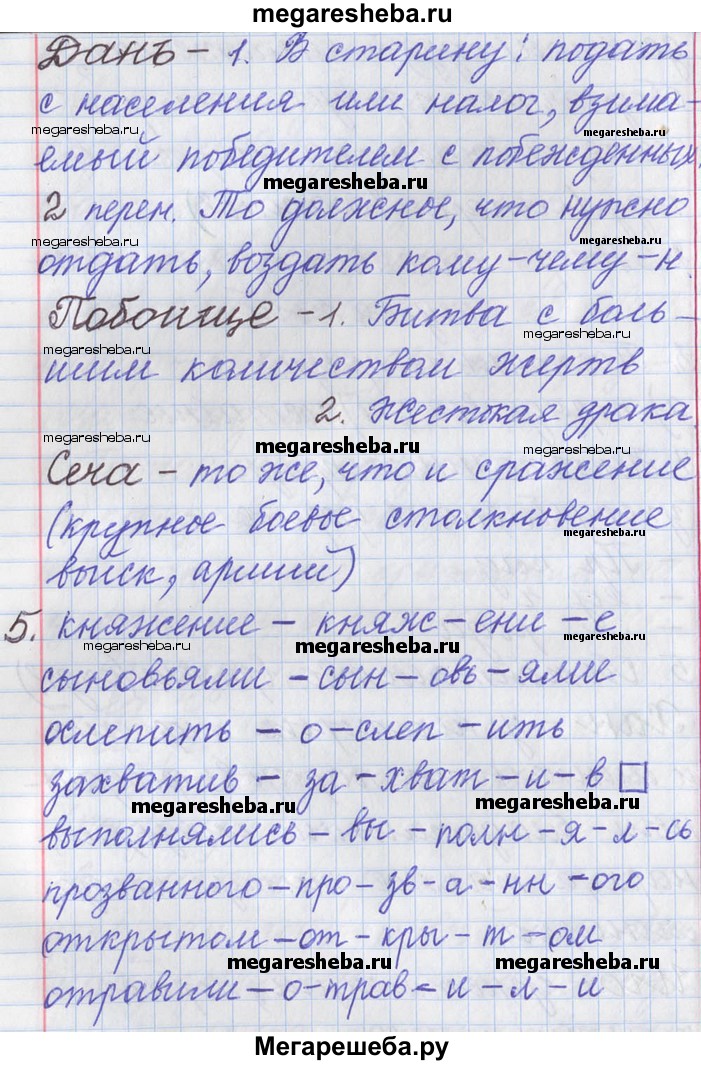 megaresheba.ru
Дань – 1. В старину: подать
с населения или налог, взима-
megaresheba.ru
megaresheba.ru
емый победителем с побежденных.
megaresheba.ru
2 перен. То должное, что нужно
megaresheba.ru
megaresheba.ru
отдать, воздать кому-чему-н.
Побоище – 1. Битва с боль-
megaresheba.ru
megaresheba.ru
шим количеством жертв
2. Жесткая драка
megaresheba.ru
megaresheba.ru
megaresheba.ru
Сеча – то же, что и сражение
(крупное боевое столкновение
megaresheba.ru
войск, армий)
5. княжение – княж-ени-е
megaresheba.ru
megaresheba.ru
megaresheba.ru
сыновьями – сын-овь-ями
ослепить – о-слеп-ить
захватив – за-хват-и-в
megaresheba.ru
megaresheba.ru
выполнялись – вы-полн-я-л-сь
прозванного – про-зв-а-нн-ого
открытом – от-кры-т-ом
megaresheba.ru
megaresheba.ru
отравили – о-трав-и-л-и
megaresheba.ru
Мегарешеба.ру